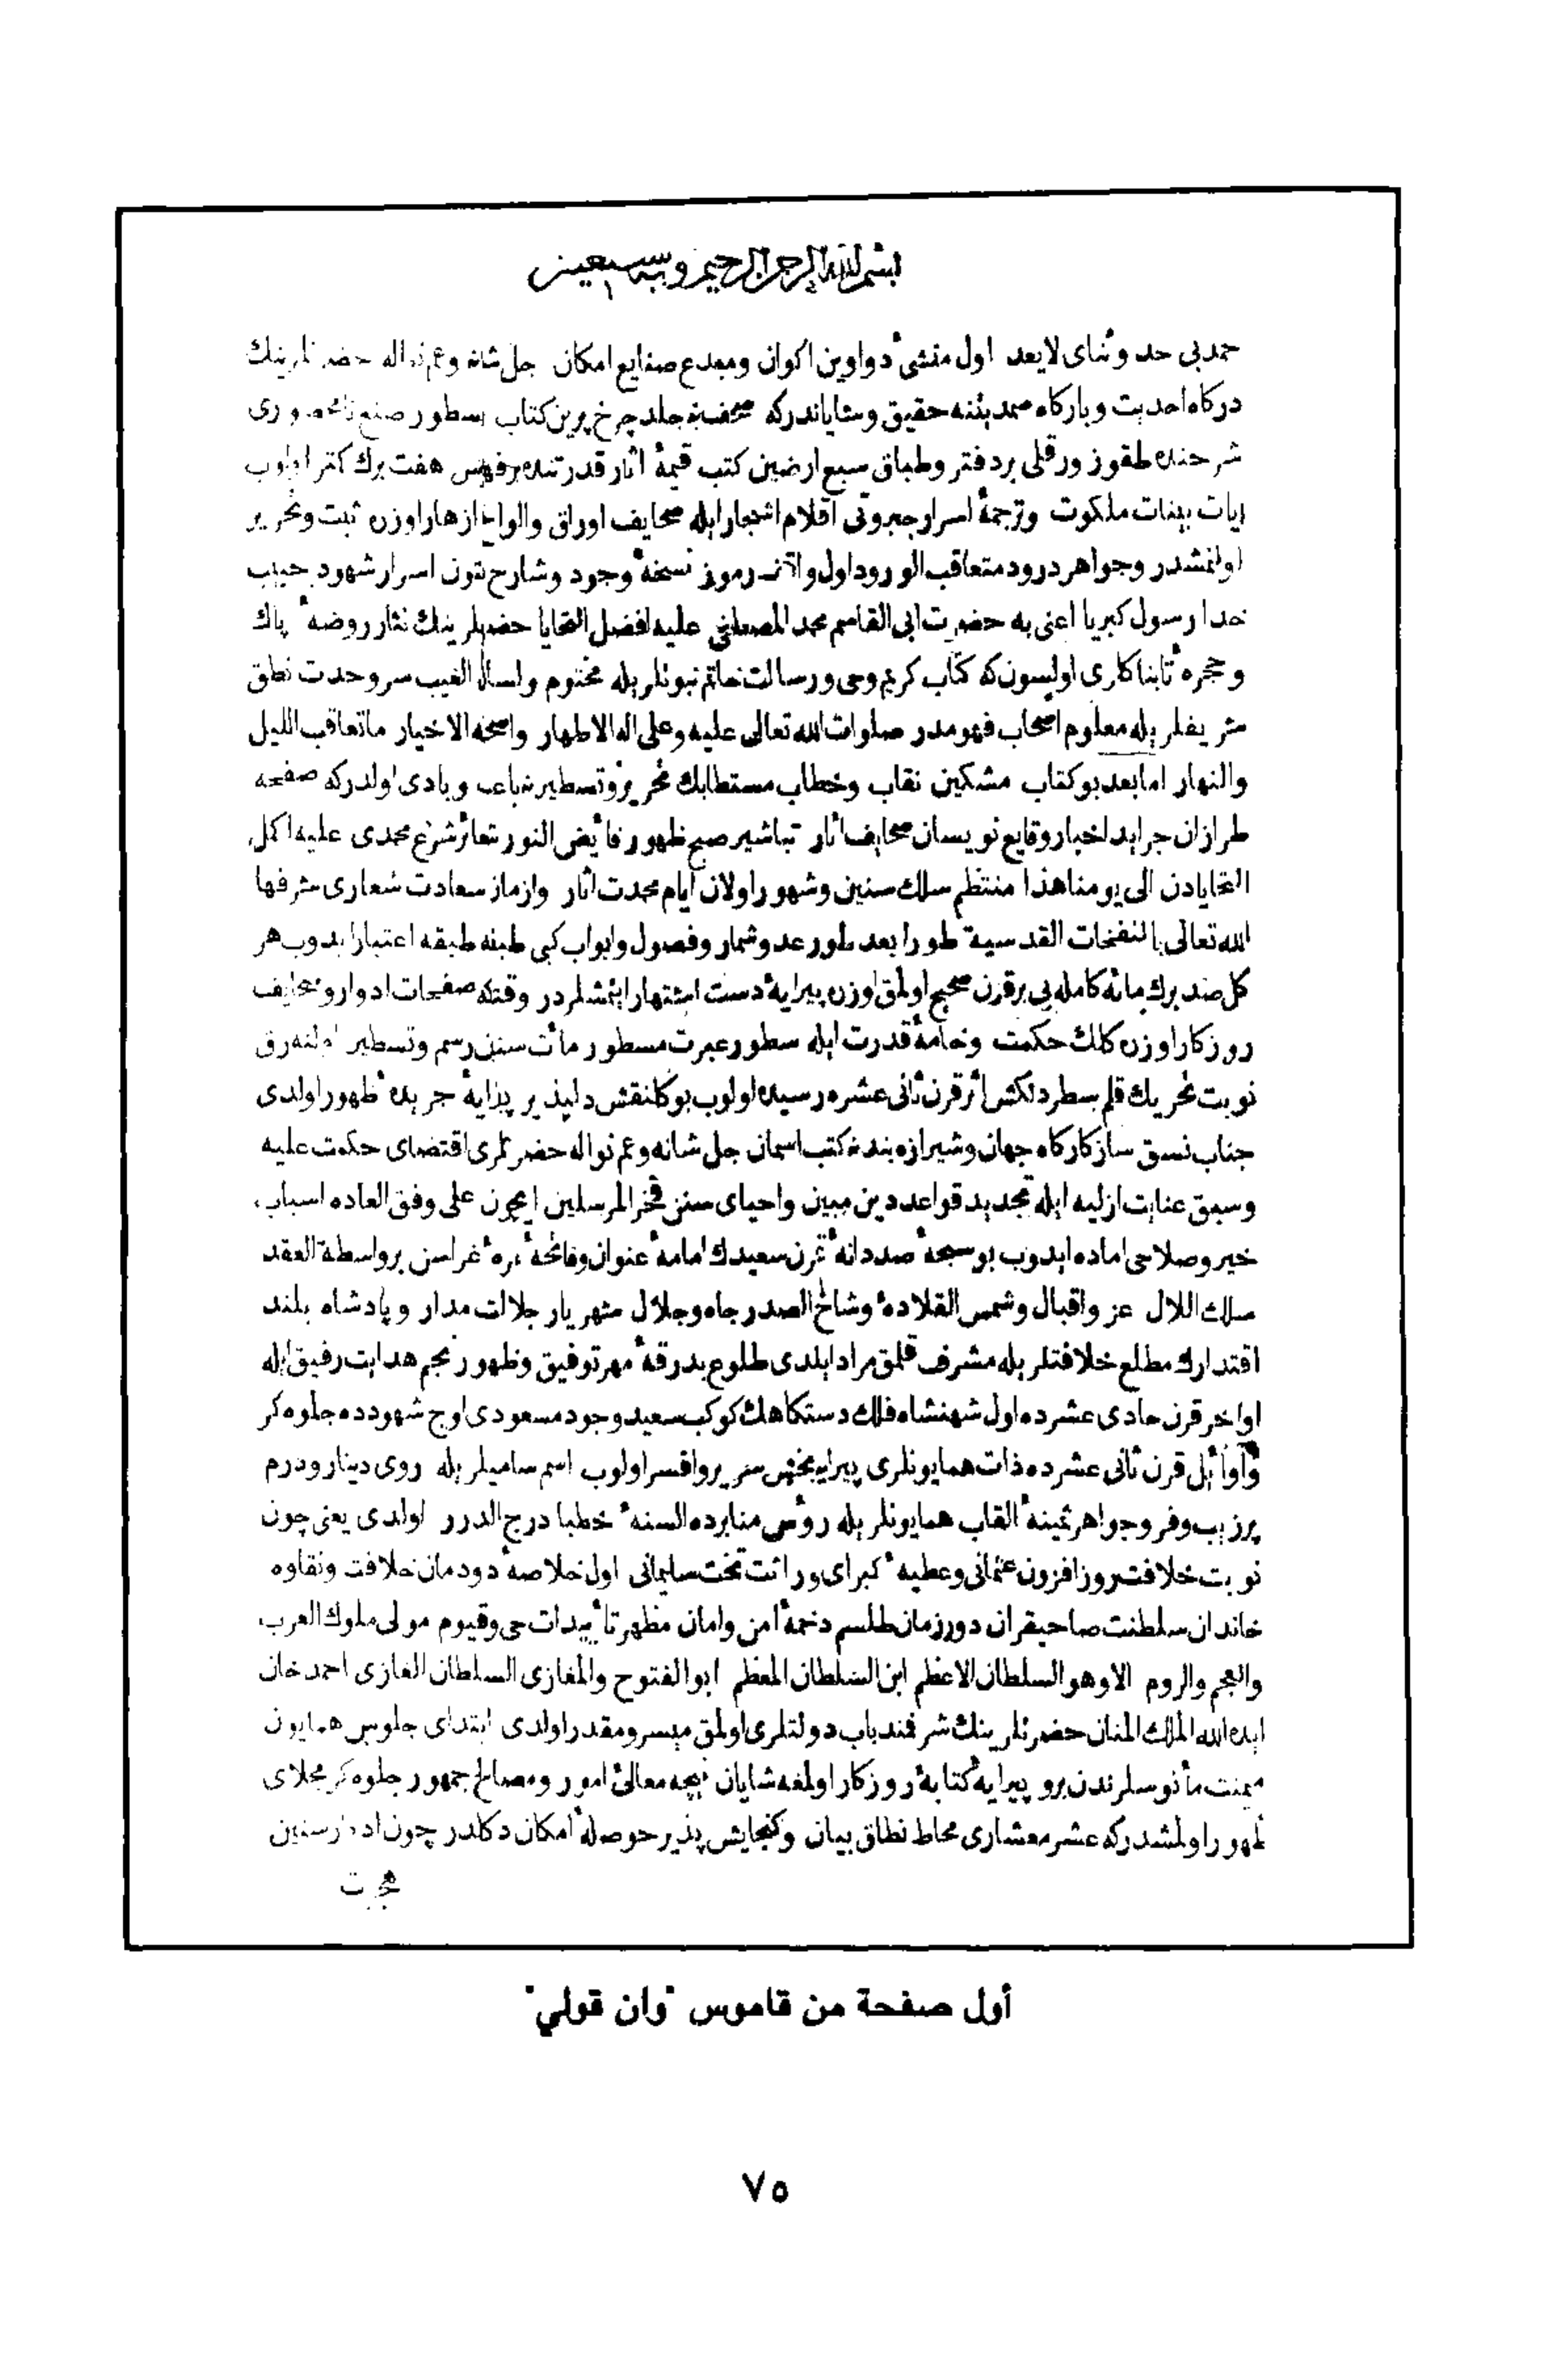 بسم الله الرحمن الرحيم وبه نستعين
حمد بى حد وثناى لايعد اول منشئ دواوين اكوان ومبدع صنايع امكان جل شانه وعم نواله حضرتلرينك
دركاه احديت وباركاه صمديتنه حقيق وشاياندركه جلد چرخ برين كتاب سطور صنع
شرحنده طقوز ورقلى بر دفتر وطباق سبع ارضين كتب قيمۀ اثار قدرتنده بر فهرس هفت برك كتر اولوب
ايات بينات ملكوت وترجمۀ اسرار جبروتى اقلام اشجار ايله صحايف اوراق والواح ازهار اوزره ثبت وتحرير
اولنمشدر وجواهر درود متعاقب الورود اول رموز نسخۀ وجود وشارح متون اسرار شهود حبيب
خدا رسول كبريا اعنى به حضرت ابى القاسم محمد المصطفى عليه افضل التحايا حضرتلرينك نثار روضۀ پاك
وحجرۀ تابناكلرى اولسون كه كتاب كريم وحى ورسالت خاتم نبوتلريله مختوم ولسان الغيب سر وحدت نطق
شريفلريله معلوم اصحاب فهومدر صلوات الله تعالى عليه وعلى اله الاطهار واصحه الاخيار ماتعاقب الليل
والنهار امابعد بوكتاب مشكين نقاب وخطاب مستطابك تحرير وتسطيرينه باعث وبادى اولدركه صفحه
طرازان جرايد اخبار وقايع نويسان صحايف اثار تباشير صبح ظهور فائض النور شرع محمدى عليه اكمل
التحايادن الى يومنا هذا منتظم سلك سنين وشهور اولان ايام محمدت اثار وازمان سعادت شعارى شرفها
الله تعالى بالنفحات القدسية طورا بعد طور عد وشمار وفصول وابواب كبى طبقه طبقه اعتبار ايدوب هر
كل صد برك مائۀ كامله يى بر قرن صحيح اولمق اوزره پيرايۀ دست اشتهار ايتمشلردر وقتكه صفحات ادوار وصحايف
روزكار اوزره كلك حكمت وخامۀ قدرت ايله سطور عبرت مسطور مأت سنين رسم وتسطير اولنه رق
نوبت تحريك قلم بسطر دلكش اثر قرن ثانى عشره رسيده اولوب بوكلنقش دلپذير پيرايۀ جريدۀ ظهور اولدى
جناب نسق ساز كاركاه جهان وشيرازه بند كتب اسمان جل شانه وعم نواله حضرتلرى اقتضاى حكمت عليه
وسبق عنايت ازليه ايله تجديد قواعد دين مبين واحياى سنن فخر المرسلين ايچون على وفق العاده اسباب
خير وصلاحى اماده ايدوب بوسبحۀ صددانۀ قرن سعيدك امامۀ عنوان وفاتحۀ غراسن بر واسطة العقد
سلك اللال عز واقبال وشمس القلادۀ وشاح الصدر جاه وجلال شهريار جلالت مدار وپادشاه بلند
اقتدارك مطلع خلافتلريله مشرف قلمق مراد ايلدى طلوع بدرقۀ مهر توفيق وظهور نجم هدايت رفيق ايله
اواخر قرن حادى عشرده اول شهنشاه فلك دستكاهك كوكب سعيد وجود مسعودى اوج شهودده جلوه كر
واوائل قرن ثانى عشرده ذات همايونلرى پيرايه بخش سرير وافسر اولوب اسم ساميلريله روى دينار ودرم
پرزيب وفر وجواهر ثمينۀ القاب همايونلريله رؤس منابرده السنۀ خطبا درج الدرر اولدى يعنى چون
نوبت خلافت روزافزون عثمانى وعطيۀ كبراى وراثت تخت سليمانى اول خلاصۀ دودمان خلافت ونقاوه
خاندان سلطنت صاحبقران دور زمان طلسم دخمۀ امن وامان مظهر تأييدات حى وقيوم مولى ملوك العرب
والعجم والروم الا وهو السلطان الاعظم ابن السلطان المعظم ابو الفتوح والمغازى السلطان الغازى احمد خان
ايده الله الملك المنان حضرتلرينك شرفند باب دولتلرى اولمق ميسر ومقدر اولدى ابتداى جلوس همايون
ميمنت مأنوسلرندن برو پيرايۀ كتابۀ روزكار اولمغه شايان نيچه معالئ امور ومصالح جمهور جلوه كر مجلاى
ظهور اولمشدركه عشر معشارى محاط نطاق بيان وكنجايش پذير حوصلۀ امكان دكلدر چون ادوار سنين
هجرت
أول صفحة من قاموس "وان قولي"
٧٥